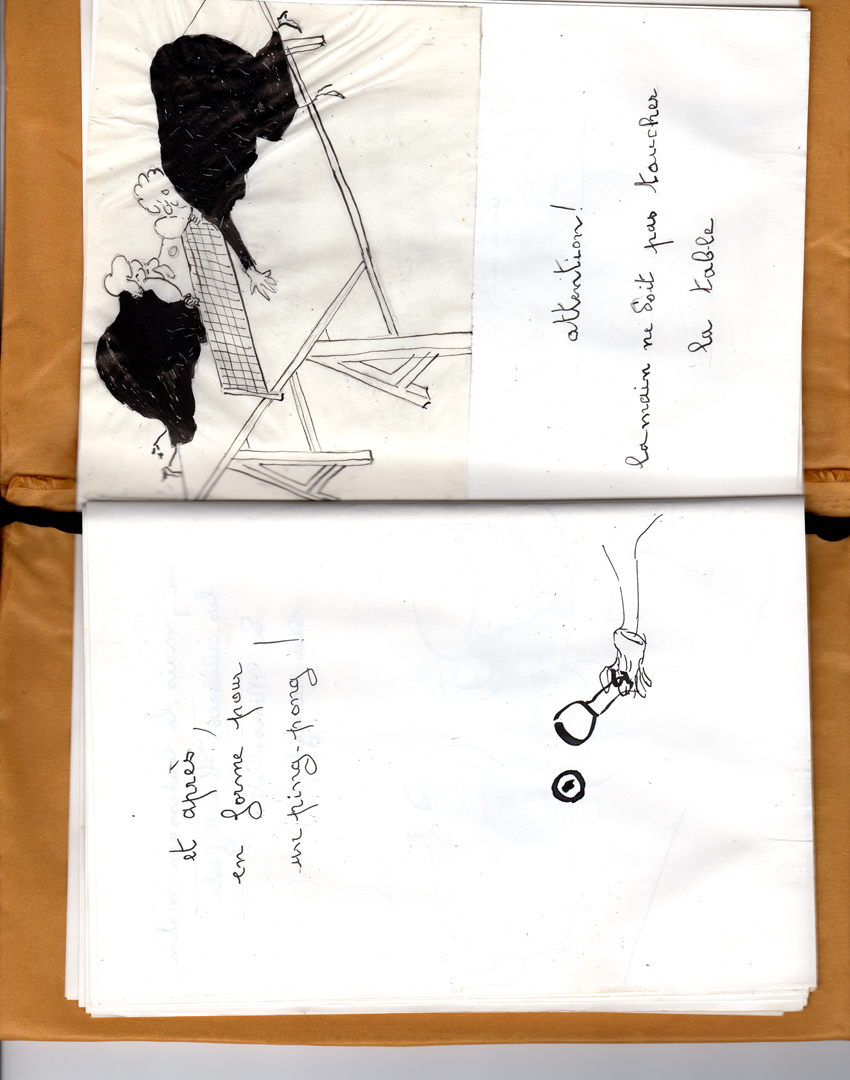 et après,
en forme pour
un ping-pong !
attention !
la main ne doit pas toucher
la table